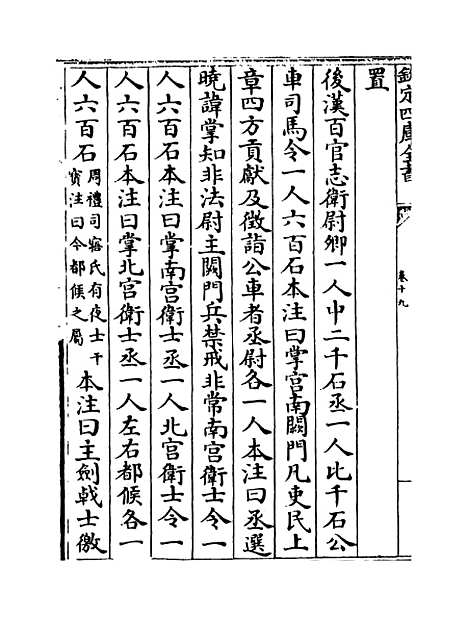 欽定四庫全書
卷十九
置
後漢百官志衛尉卿一人中二千石丞一人比千石公
車司馬令一人六百石本注曰掌宫南闕門凡吏民上
章四方貢獻及徵詣公車者丞尉各一人本注曰丞選
曉諱掌知非法尉主闕門兵禁戒非常南宫衛士令一
人六百石本注曰掌南宫衛士丞一人北宫衛士令一
人六百石本注曰掌北宫衛士丞一人左右都候各一
人六百石周禮司寤氏有夜士干寳注曰今都候之屬本注曰主劍戟士徼